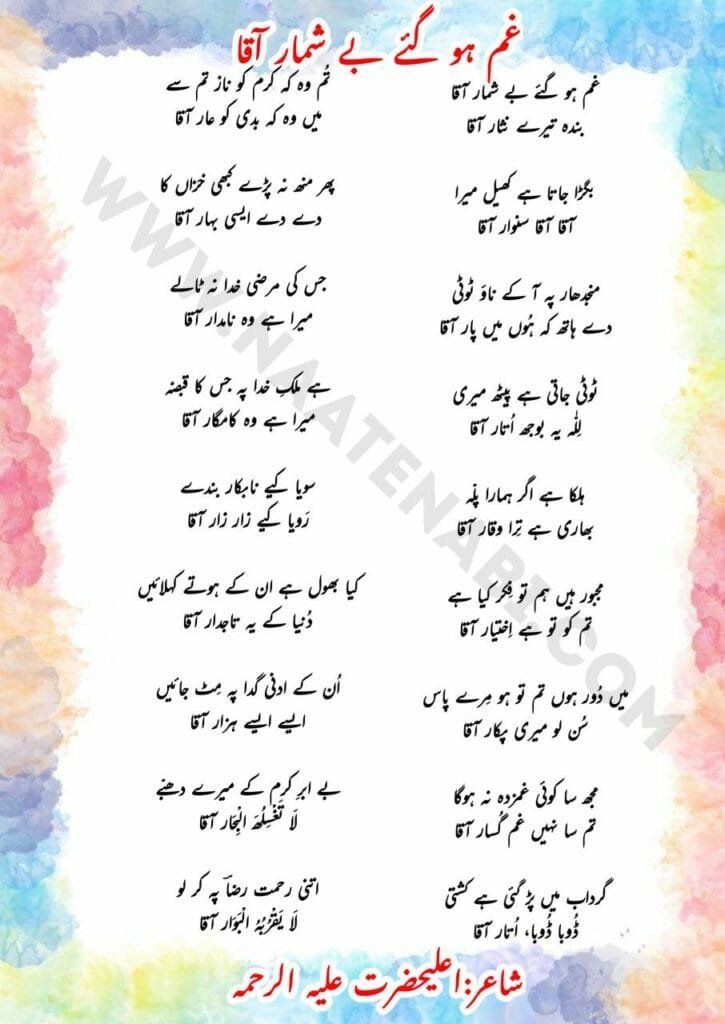 غم ہو گئے بے شمار آقا
غم ہو گئے بے شمار آقا
بندہ تیرے نثار آقا
بگڑا جاتا ہے کھیل میرا
آقا آقا سنوار آقا
منجدھار پہ آ کے ناؤ ٹوٹی
دے ہاتھ کہ ہُوں میں پار آقا
ٹوٹی جاتی ہے پیٹھ میری
لِلّٰہ یہ بوجھ اُتار آقا
ہلکا ہے اگر ہمارا پلّہ
بھاری ہے تِرا وقار آقا
مجبور ہیں ہم تو فِکر کیا ہے
تم کو تو ہے اِختیار آقا
میں دُور ہوں تم تو ہو مِرے پاس
سُن لو میری پکار آقا
مجھ سا کوئی غمزدہ نہ ہوگا
تم سا نہیں غم گُسار آقا
گرداب میں پڑ گئی ہے کشتی
ڈُوبا ڈُوبا، اُتار آقا
تُم وہ کہ کرم کو ناز تم سے
میں وہ کہ بدی کو عار آقا
پھر منھ نہ پڑے کبھی خزاں کا
دے دے ایسی بہار آقا
جس کی مرضی خدا نہ ٹالے
میرا ہے وہ نامدار آقا
ہے ملکِ خدا پہ جس کا قبضہ
میرا ہے وہ کامگار آقا
سویا کیے نابکار بندے
رَویا کیے زار زار آقا
کیا بھول ہے ان کے ہوتے کہلائیں
دُنیا کے یہ تاجدار آقا
اُن کے ادنی گدا پہ مِٹ جائیں
ایسے ایسے ہزار آقا
بے ابرِ کرم کے میرے دھبّے
لَا تَغْسِلُھَا الْبِحَار آقا
اتنی رحمت رضاؔ پہ کر لو
لَا یَقْرُبُہُ الْبَوَار آقا
شاعر:اعلیحضرت علیہ الرحمہ
WWW.NAATENABI.COM